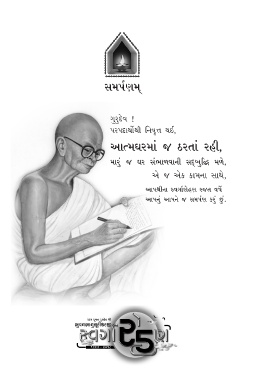 સમર્પણમ્
ગુરુદેવ !
પરપદાર્થોથી નિવૃત્ત થઈ,
આત્મઘરમાં જ ઠરતાં રહી,
મારું જ ઘર સંભાળવાની સદ્બુદ્ધિ મળે,
એ જ એક કામના સાથે,
આપશ્રીના સ્વર્ગારોહણ રજત વર્ષે
આપનું આપને જ સમર્પણ કરું છું.
સ્વર્ગા
૨૫